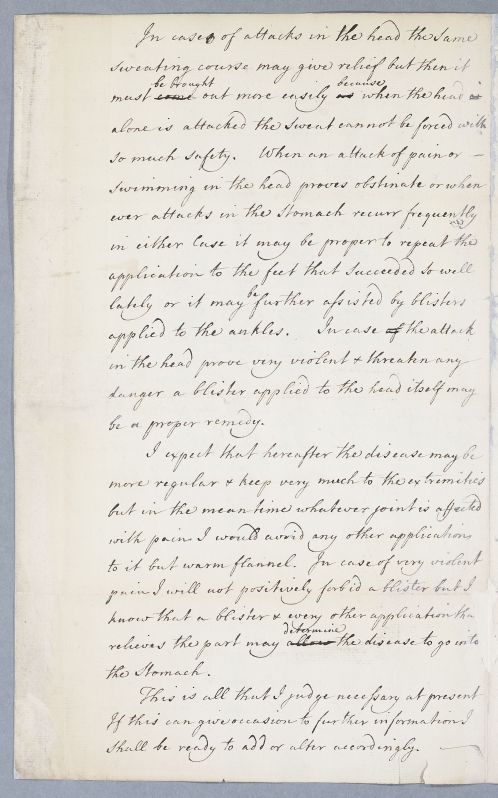 In case of attacks in the head the same
sweating course may give relief but then it
must come be brought out more easily as because when the head is
alone is attacked the sweat cannot be forced with
so much safety. When an attack of pain or -
swimming in the head proves obstinate or when
ever attacks in the Stomach recurr frequently
in either Case it may be proper to repeat the
application to the feet that Succeeded so well
lately or it may be further assisted by blisters
applied to the ankles. In case of the attack
in the head prove very violent & threaten any
danger a blister applied to the head itself may
be a proper remedy.
I expect that hereafter the disease may be
more regular & keep very much to the extremities
but in the mean time whatever joint is affected
with pain I would avoid any other application
to it but warm flannel. In case of very violent
pain I will not positively forbid a blister but I
know that a blister & every other application tha
relieves the part may allow determine the disease to go into
the Stomach.
This is all that I judge necessary at present
If this can give occasion to further information I
shall be ready to add or alter accordingly.